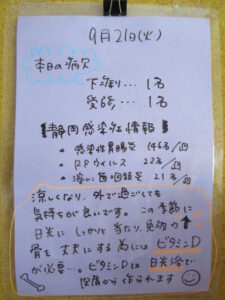 9月21日(火)
本日の病欠
下痢… 1名
発熱… 1名
静岡感染症情報
・感染性胃腸炎 146名/週
・RSウイルス 22名/週
・溶レン菌咽頭炎 21名/週
涼しくなり、外で過ごしても
気持ちが良いです。この季節に
日光にしっかりと当たり、免疫力↑
骨を丈夫にする為にはビタミンD
が必要…。ビタミンDは日光浴で
皮膚から作られます